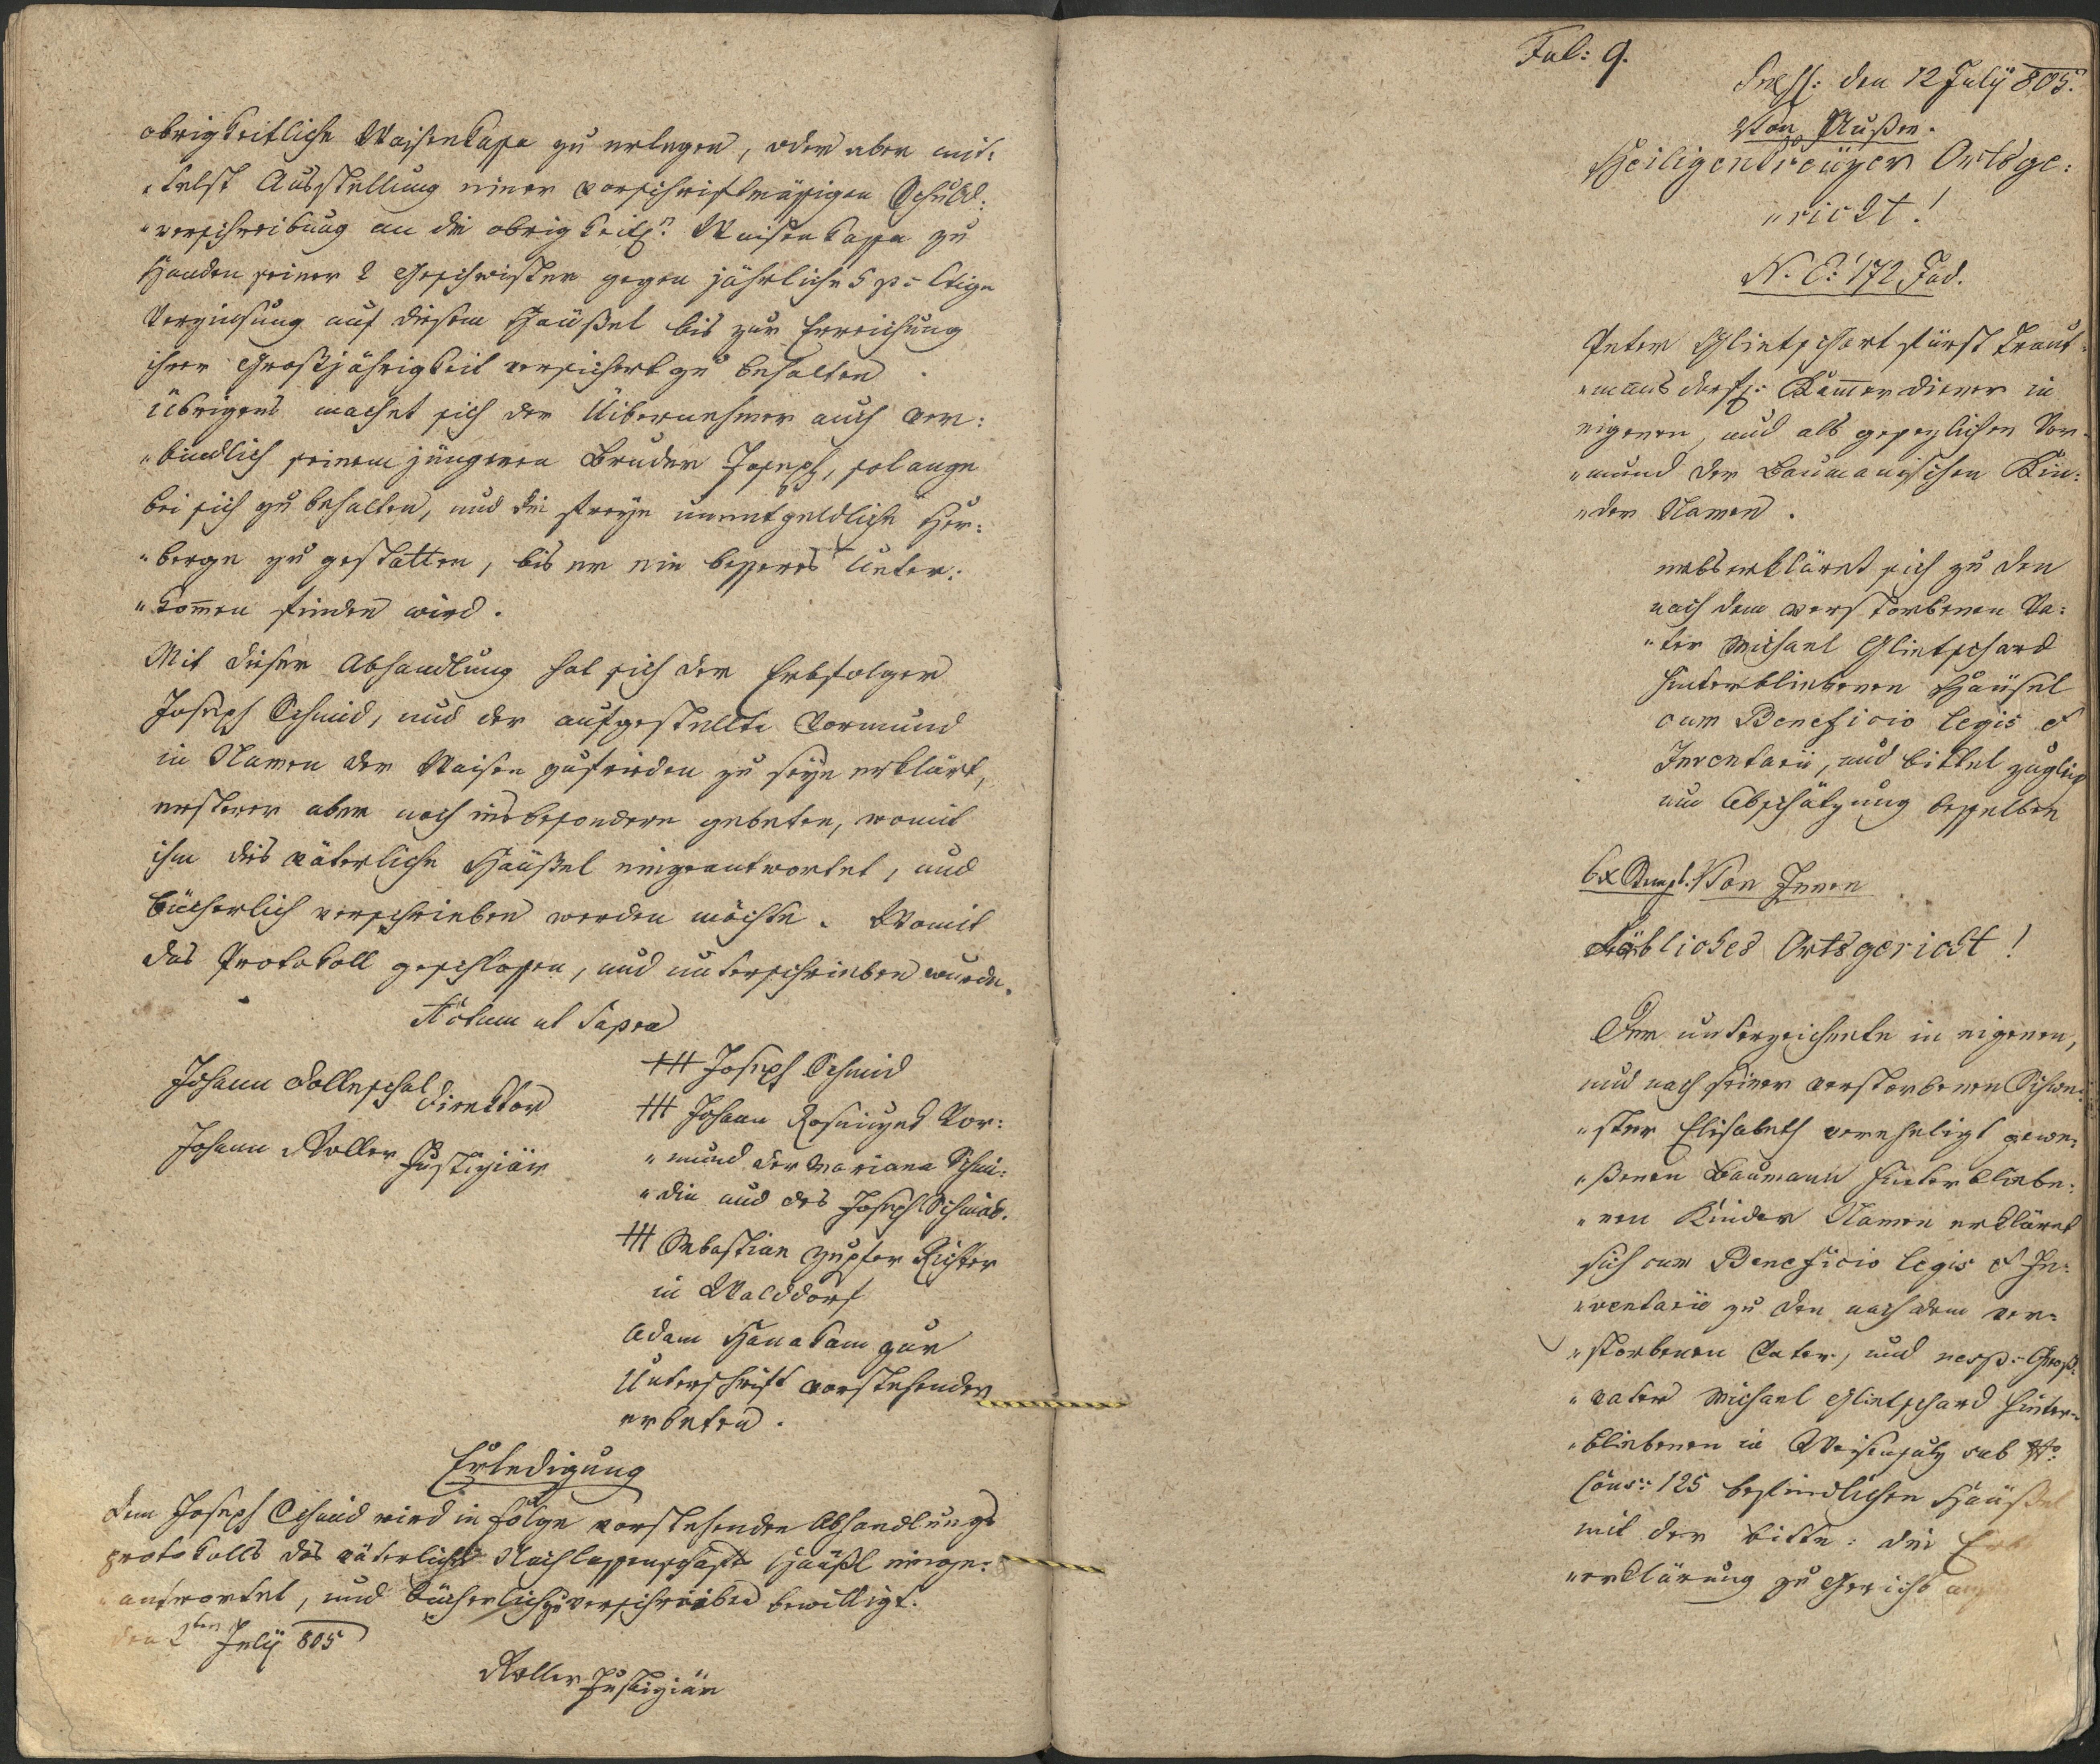 obrigkeitliche Waisenkassa zu erlegen, oder aber mit:
"telst Ausstellung einer vorschriftmässigen Schuld:
"verschreibung an die obrigkeitl: Waisenkassa zu
Handen seiner 2 Geschwister gegen jährliche 5 p:Ctige
Verzinsung auf diesem Häußel bis zur Erreichung
ihrer Großjährigkeit versichert zu behalten.
Übrigens machet sich der Uibernehmer auch ver:
"bindlich seinem jüngeren Bruder Joseph, solange
bei sich zu behalten, und die freye unentgeldliche Her:
"berge zu gestatten, bis er ein besseres Unter:
"kom̅en finden wird.
Mit dieser Abhandlung hat sich der Erbfolger
Joseph Schmid, und der aufgestellte Vormund
in Namen der Waisen zufrieden zu seyn erklärt,
ersterer aber noch insbesondere gebeten, womit
ihm dies väterliche Häußel eingeantwortet, und
bücherlich verschrieben werden möchte. Womit
das Protokoll geschlossen, und unterschrieben wurde.
Actum ut Supra
Johann Dolleschal Direktor
Johann Roller Justiziär
+++ Joseph Schmid
+++ Johann Vor:
"mund der Mariana Schmi:
"din und des Joseph Schmid.
+++ Sebastian Zupfer Richter
in Walddorf
Adam Hanakam zur
Unterschrift vorstehender
erbeten.
Erledigung
Dem Joseph Schmid wird in Folge vorstehenden Abhandlungs
protokolls das väterliche Nachlassenschafts Häußl einge:
"antwortet, und bücherlich zu verschreiben bewilligt.
den 2ten July 805
Roller Justiziär
Fol: 9.
den 12 July 805.
Von Außen.
Heiligenkreüzer Ortsge:
"richt!
N. E: 172 Jud.
Peter Glietschart fürst Traut
"mansdorfl: Kam̅erdiener in
eigenen, und als gesezlichen Vor
"mund der Baumanischen Kin:
"der Namen.
erbserkläret sich zu den
nach dem verstorbenen Va:
"ter Michael Glietschard
hinterbliebenen Häußel
cum Beneficio legis et
Inventarii, und bittet zugleich
um Abschätzung desselben
6x Stempl. Von Innen
Löbliches Ortsgericht!
Der unterzeichnete in eigenen,
und nach seiner verstorbenen Schwe:
"ster Elisabeth verehligt gewe:
"ßenen Baumann hinterbliebe:
"nen Kinder Namen erkläret
sich cum Beneficio legis et In:
"ventarii zu den nach dem ver:
"storbenen Vater, und resp: Groß:
"vater Michael Glietschard hinter:
"bliebenen in sub No:
Cons: 125 befindlichen Häußel
mit der bitte: die Erbs
"erklärung zu Gericht